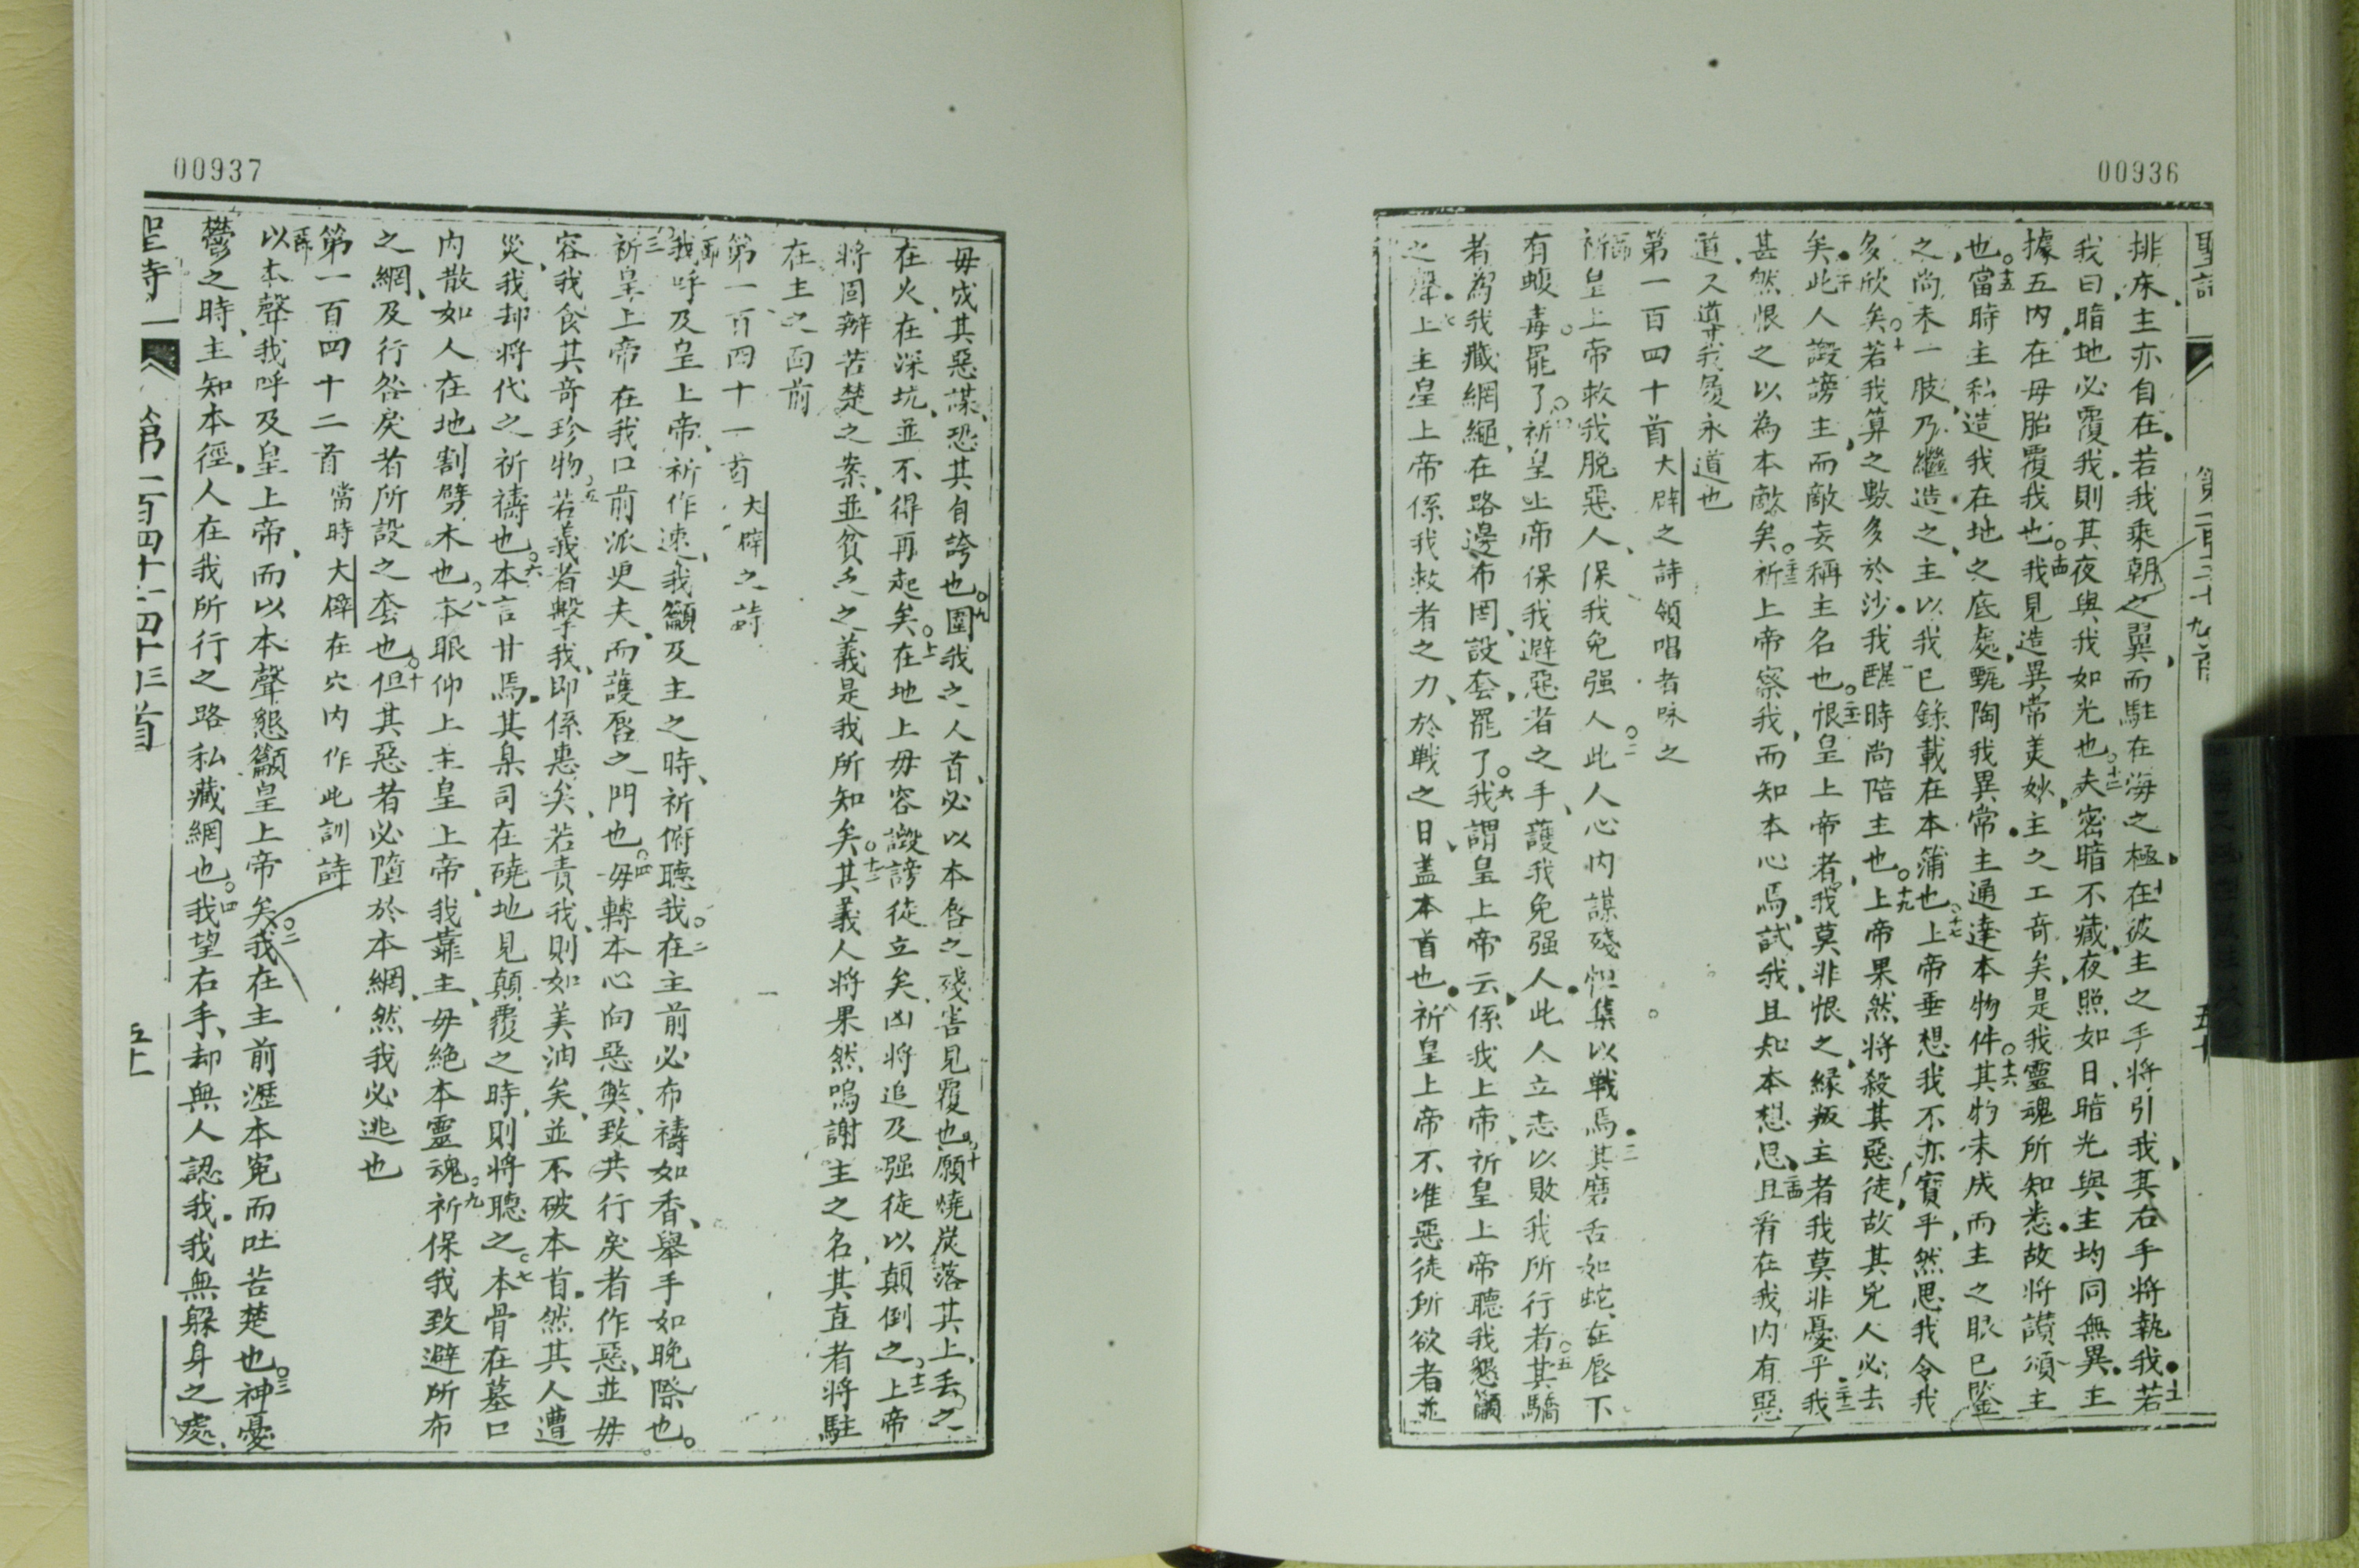 00936
聖詩
第一百三十九首
排床、主亦自在、若我乘朝之翼、而駐在海之極、十在彼主之手將引我、其右手將執我、十一若
我曰、暗地必覆我、則其夜與我如光也、十二夫密暗不藏、夜照如日、暗光與主均同無異、主
據五內、在毋胎覆我也、十四我見造異常美妙、主之工奇矣、是我靈魂所知悉、故將讚頌主
也、十五當時主私造我在地之底處、甄陶我異常、主通達本物件、十六其物未成而主之眼已鑒
之、尚未一肢、乃繼造之、主以我已錄載在本蒲也、十七上帝垂想我不亦寶乎、然思我令我
多欣矣、十八若我算之數多於沙、我醒時尚陪主也、十九上帝果然將殺其惡徒、故其兇人必去
矣、二十此人譭謗主、而敵妄稱主名也、二十一恨皇上帝者、我莫非恨之、緣叛主者我莫非憂乎、二十二我
甚然恨之以為本敵矣、二十三祈上帝察我、而知本心焉、試我、且知本想思、二十四且看在我內有惡
道、又導我履永道也
第一百四十首大辟之詩領唱者咏之
一節祈皇上帝救我脫惡人、保我免强人、二此人心內謀殘、恒集以戰焉、三其磨舌如蛇、在唇下
有蝮毒罷了、四祈皇上帝保我避惡者之手、護我免强人、此人立志以敗我所行者、五其驕
者為我藏網繩、在路邊布罔、設套罷了、六我謂皇上帝云、係我上帝、祈皇上帝聽我懇籲
之聲、七上主皇上帝係我救者之力、於戰之日、盖本首也、八祈皇上帝不准惡徒所欲者並
00937
毋成其惡謀、恐其自誇也、九圍我之人首、必以本唇之殘害見覆也、十願燒炭落其上、丢之
在火、在深坑、並不得再起矣、十一在地上毋容譭謗徒立矣、凶將追及强徒以顛倒之、十二上帝
將固辦苦楚之案、並貧乏之義是我所知矣、十三其義人將果然嗚謝主之名、其直者將駐
在主之面前
第一百四十一首大辟之詩
一節我呼及皇上帝、祈作速、我籲及主之時、祈俯聽我、二我在主前必布禱如香、舉手如晚際也。
三祈皇上帝在我口前派更夫、而護唇之門也、四毋轉本心向惡獘、致共行戾者作惡、並毋
容我食其奇珍物、五若義者擊我、即係惠矣、若責我、則如美油矣、並不破本首、然其人遭
災、我却將代之祈禱也、六本言甘焉、其臬司在磽地見顛覆之時、則將聽之、七本骨在墓口
內散如人在地割劈木也、八本眼仰上主皇上帝、我靠主、毋絕本靈魂、九祈保我致避所布
之網、及行咎戾者所設之套也、十但其惡者必墮於本網、然我必逃也
第一百四十二首當時大辟在穴內作此訓詩
一節以本聲我呼及皇上帝、而以本聲懇籲皇上帝矣、二我在主前瀝本寃而吐苦楚也、三神憂
鬱之時、主知本徑、人在我所行之路私藏網也、四我望右手、却無人認我、我無躲身之處、
聖詩
第一百四十一四十三首
五十一